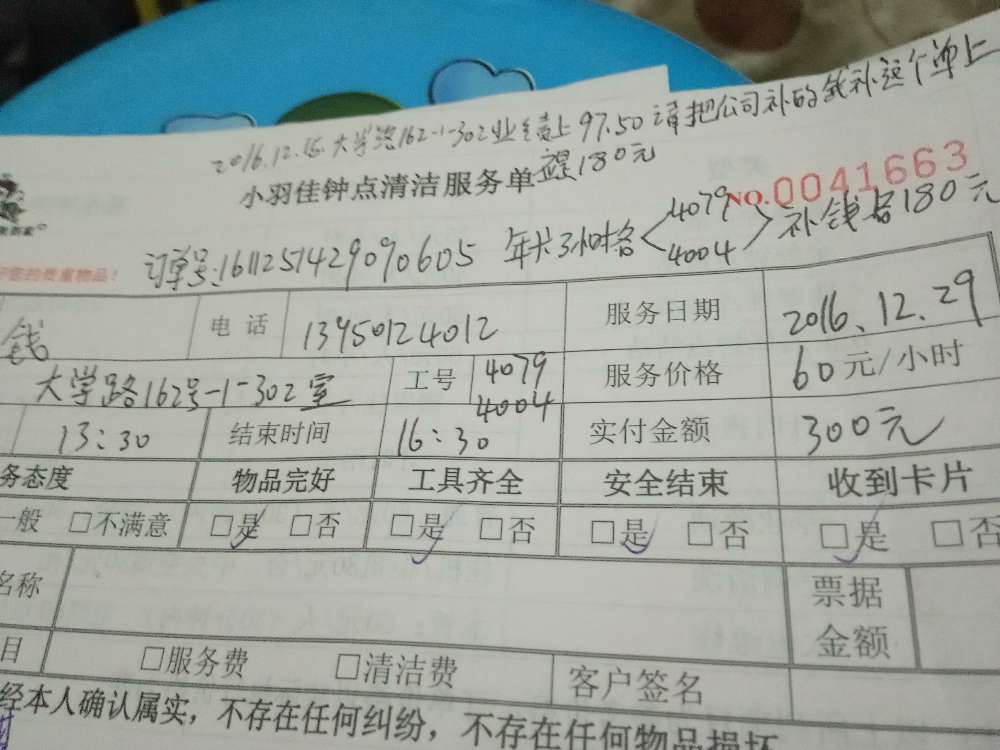 2016.12.15.大学路162-1-302业绩上97.50请把公司补的钱补这个单上
是180元
小羽佳钟点清洁服务单
NO.0041663
订单号:1611251429090605 年卡3小时各<4079 4004>补钱各180元
您的贵重物品!
钱 电话 13950124012 服务日期 2016.12.29
大学路162号-1-302室 工号 4079 4004 服务价格 60元/小时
13:30 结束时间 16:30 实付金额 300元
务态度 物品完好 工具齐全 安全结束 收到卡片
一般 □不满意 □是 □否 □是 □否 □是 □否 □是 □否
名称 票据金额
目 □服务费 □清洁费 客户签名
经本人确认属实，不存在任何纠纷，不存在任何物品损坏